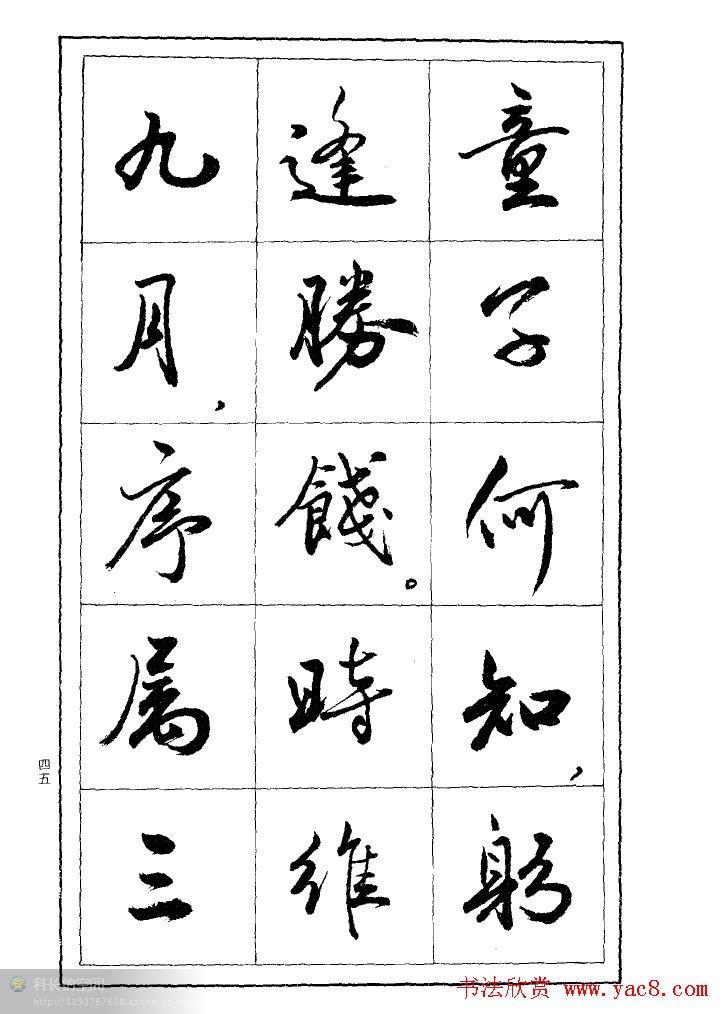 童子何知，躬
逢勝餞。時維
九月，序属三
四五
科长的空间
http://1193767618.qzone.qq.com
书法欣赏 www.yac8.com